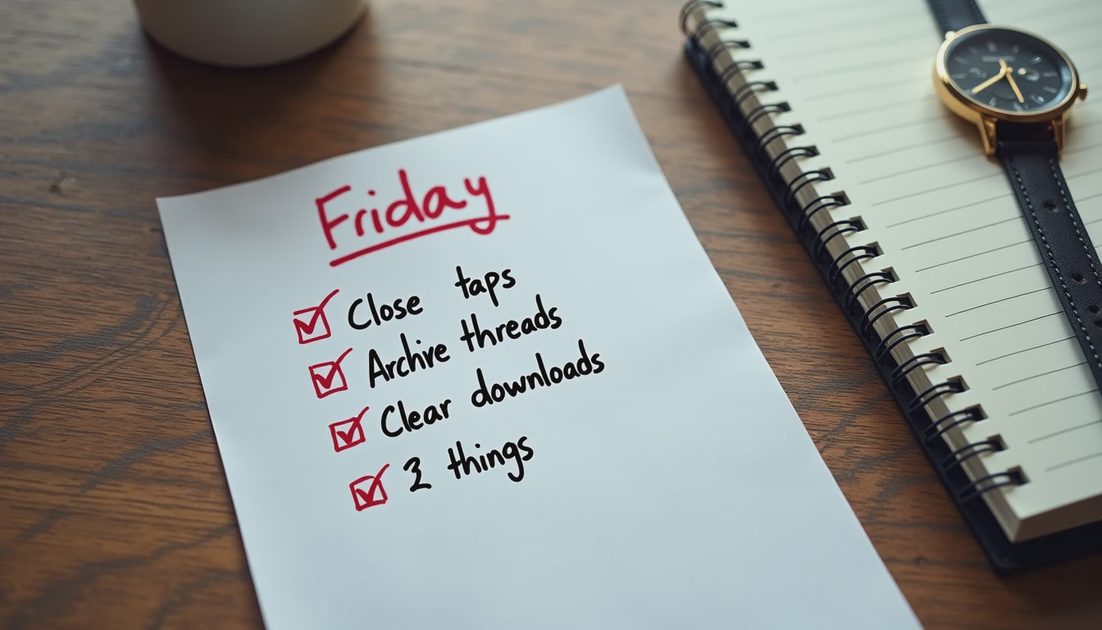 Friday
Close taps
Archive threads
Clear downloads
2 things